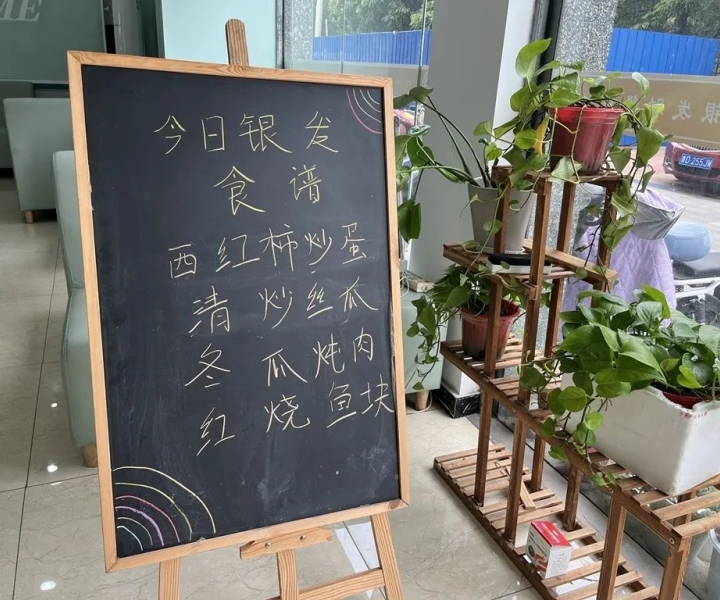 今日银发
食谱
西红柿炒蛋
清炒丝瓜
冬瓜炖肉
红烧鱼块
ME
银发